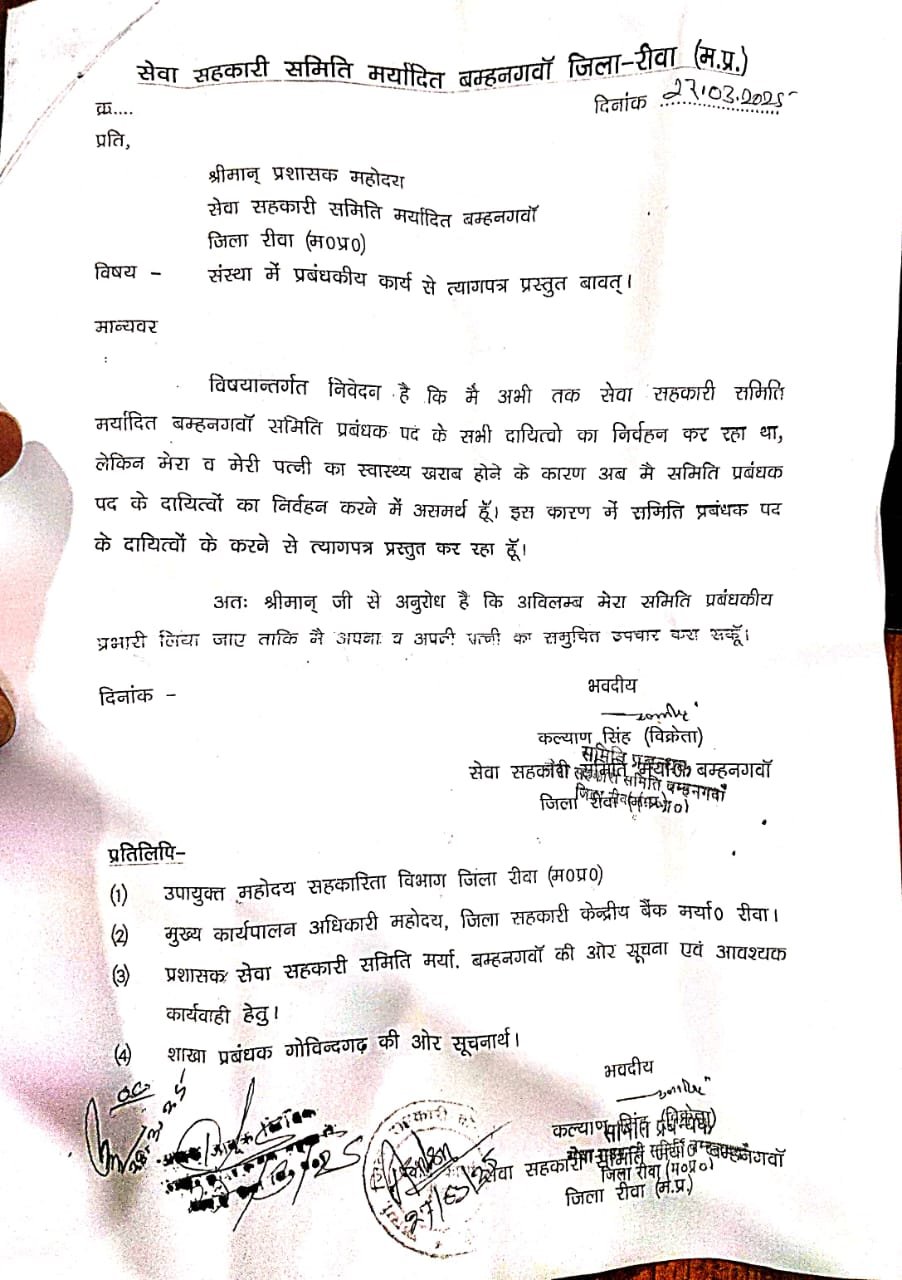 सेवा सहकारी समिति मर्यादित बम्हनगवॉ जिला-रीवा (म.प्र.)
क्र....
दिनांक 27.03.2025
प्रति,
श्रीमान् प्रशासक महोदय
सेवा सहकारी समिति मर्यादित बम्हनगवॉ
जिला रीवा (म0प्र0)
विषय - संस्था में प्रबंधकीय कार्य से त्यागपत्र प्रस्तुत बावत्।
मान्यवर
:
विषयान्तर्गत निवेदन है कि मै अभी तक सेवा सहकारी समिति
मर्यादित बम्हनगवॉ समिति प्रबंधक पद के सभी दायित्वो का निर्वहन कर रहा था,
लेकिन मेरा व मेरी पत्नी का स्वास्थ्य खराब होने के कारण अब मै समिति प्रबंधक
पद के दायित्वों का निर्वहन करने में असमर्थ हूँ। इस कारण में समिति प्रबंधक पद
के दायित्वों के करने से त्यागपत्र प्रस्तुत कर रहा हूँ।
अतः श्रीमान् जी से अनुरोध है कि अविलम्ब मेरा समिति प्रबंधकीय
प्रभारी लिया जाए ताकि मै अपना व अपनी पत्नी का समुचित उपचार करा सकूँ।
दिनांक -
भवदीय
कल्याण सिंह (विक्रेता)
समिति प्रबन्धक
सेवा सहकारी समिति मर्या0 बम्हनगवॉ
सेवा सहकारी समिति बम्हनगवॉ
जिला रीवा (म0प्र0)
जिला रीवा (म.प्र.)
प्रतिलिपि-
(1) उपायुक्त महोदय सहकारिता विभाग जिला रीवा (म0प्र0)
(2) मुख्य कार्यपालन अधिकारी महोदय, जिला सहकारी केन्द्रीय बैंक मर्या0 रीवा।
(3) प्रशासक सेवा सहकारी समिति मर्या. बम्हनगवॉ की ओर सूचना एवं आवश्यक
कार्यवाही हेतु।
(4) शाखा प्रबंधक गोविन्दगढ़ की ओर सूचनार्थ।
भवदीय
O.C.
कल्याण सिंह (विक्रेता)
समिति प्रबन्धक
सेवा सहकारी समिति मर्या0 बम्हनगवॉ
सेवा सहकारी समिति बम्हनगवॉ
जिला रीवा (म0प्र0)
जिला रीवा (म.प्र.)
27/03/25